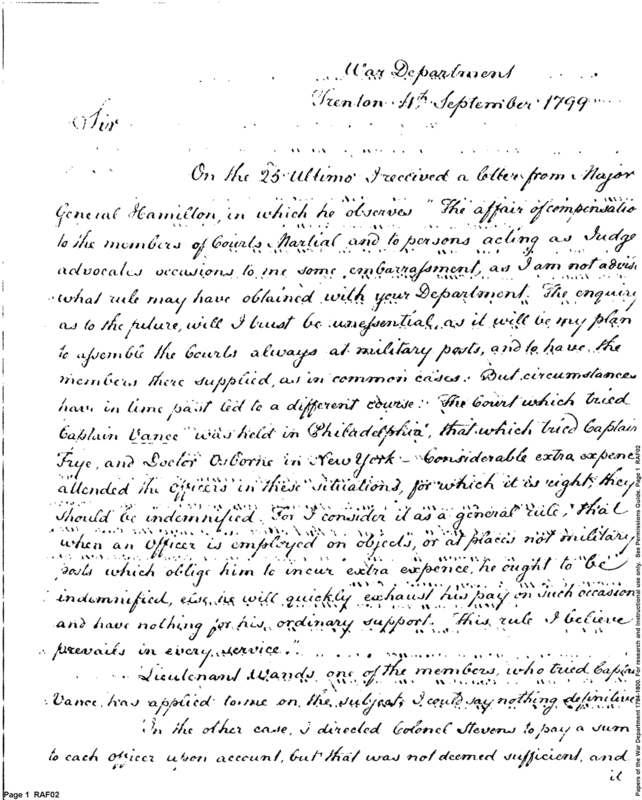 War Department
Trenton 4th September 1799
Sir
On the 25 Ultimo I received a letter from Major
General Hamilton, in which he observes "The affair of compensatio
to the members of Courts Martial and to persons acting as Judge
advocates occasions to me some embarrassment, as I am not advis
what rule may have obtained with your Department. The enquiry
as to the future, will I trust be unessential, as it will be my plan
to assemble the Courts always at military posts, and to have the
members there supplied, as in common cases. But circumstances
have in time past led to a different course. The Court which tried
Captain Vance was held in Philadelphia, that which tried Captain
Frye, and Doctor Osborne in New York - Considerable extra expence
attended the Officers in these situations, for which it is right they
should be indemnified. For I consider it as a general rule, that
when an Officer is employed on objects, or at places not military
posts which oblige him to incur extra expence, he ought to be
indemnified, else he will quickly exhaust his pay on such occasion
and have nothing for his ordinary support. This rule I believe
prevails in every service."
Lieutenant Wands, one of the members, who tried Captai
Vance, has applied to me on the subject; I could say nothing definitive
In the other case, I directed Colonel Stevens to pay a sum
to each officer upon account, but that was not deemed sufficient, and
it
Page 1 RAF02
Papers of the War Department 1784-1800. For research and instructional use only. See Permissions Guide. Page 1 RAF02